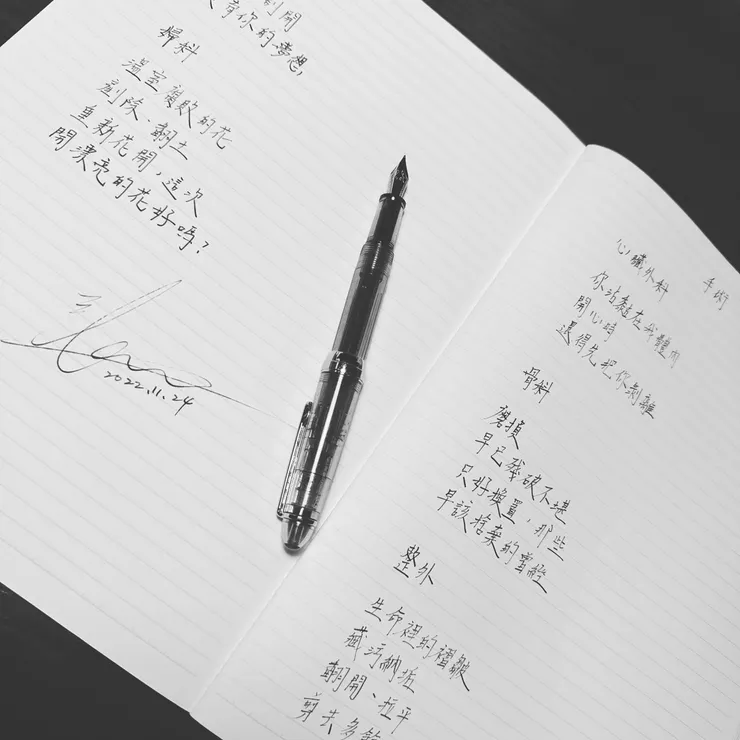 手術
心臟外科
你沾黏在我體內
開心時
還得先把你剝離
骨科
磨損
早已殘破不堪
只好換置，那些
早該捨棄的
整外
生命裡的褶皺
藏污納垢
翻開、拉平
剪去多餘
開
你的夢想，
婦科
溫室腐敗的花
剷除、翻土
重新花開，這次
開漂亮的花好嗎？
2022.11.24